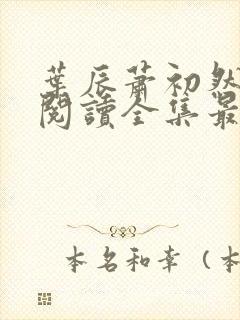 葉辰蕭初然
閱讀全集最
本名和幸（本